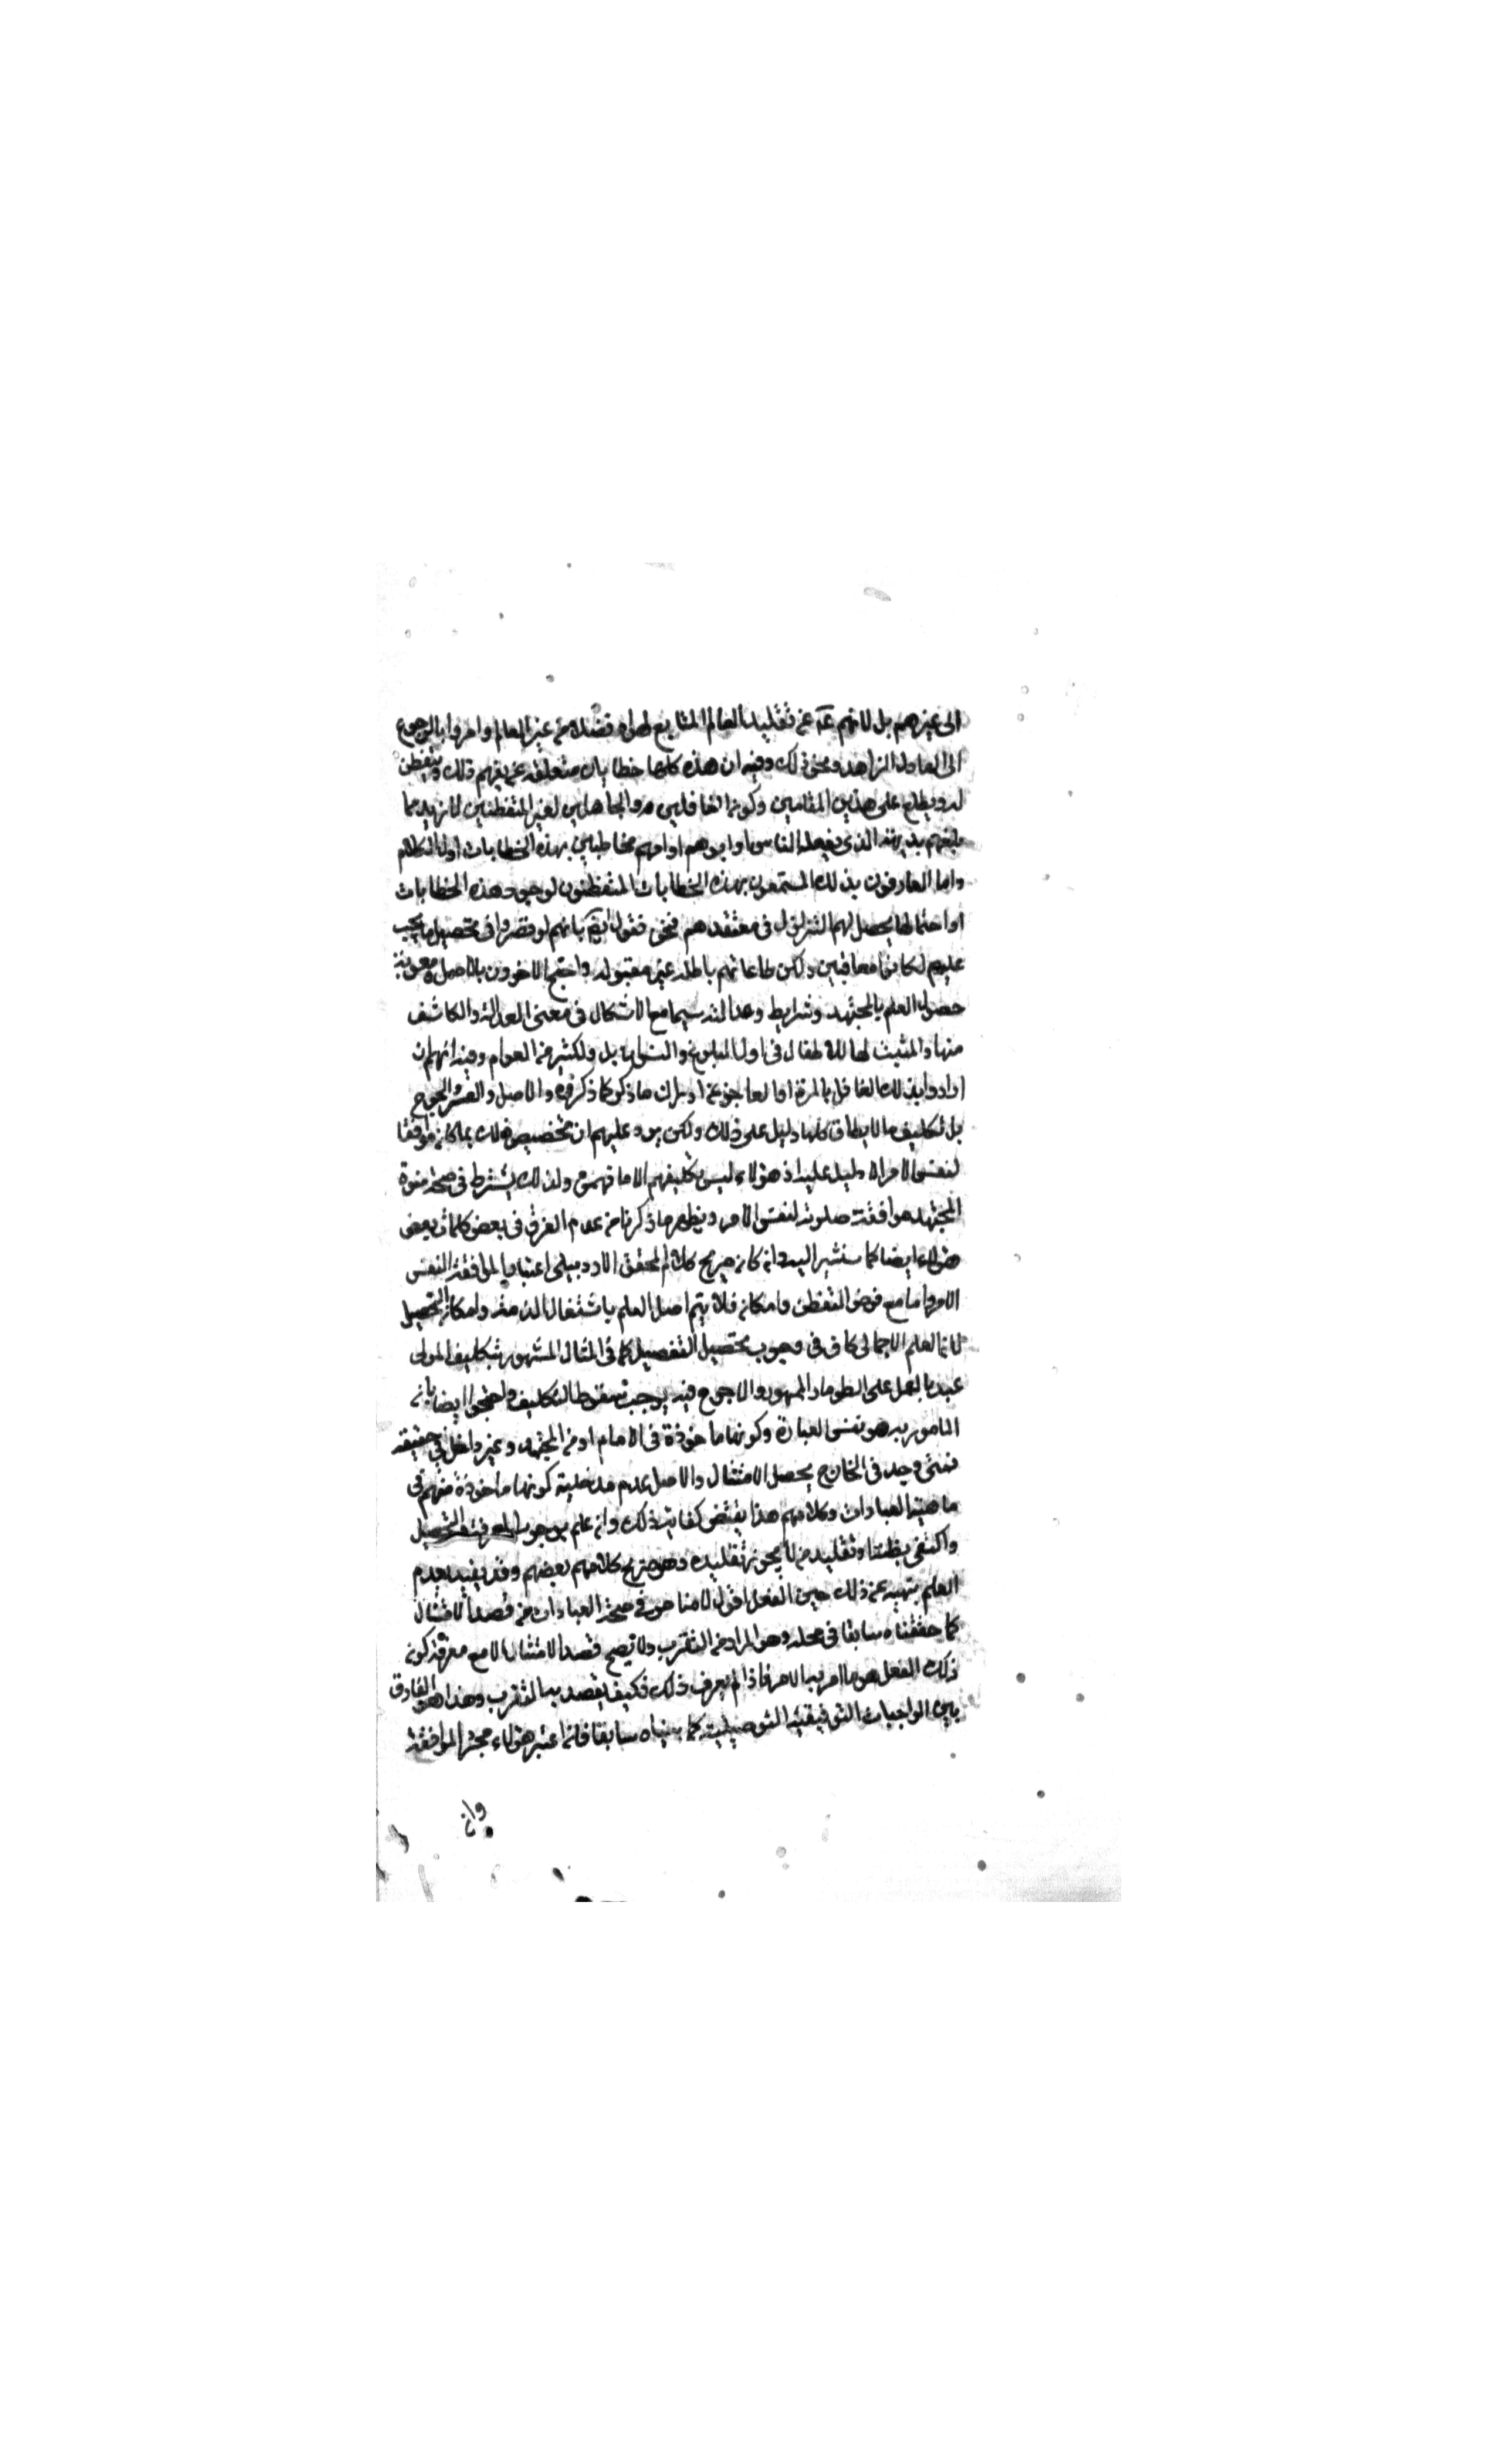 الى غيرهم بل لانهم عه عن تقليد العالم المتابع لهواه فضلا عن غير العالم وامروا بالرجوع
الى العادل الزاهد ونحو ذلك وفيه ان هذه كلها خطابات متعلقة بمن يفهم ذلك ويتفطن
له ويطلع على هذين المقامين وكون الغافلين والجاهلين لغير المتفطنين لا يزيد مما
يلقنهم به الذى يفعله الناس او ابوهم او امهم مخاطبين بهذه الخطابات اول الكلام
واما العارفون بذلك المستمعون بهذه الخطابات المتفطنون لوجود هذه الخطابات
او احتمالها يحصل لهم التزلزل فى معتقدهم فنحن نقول بانهم لو قصروا فى تحصيل ما يجب
عليهم لكانوا معاقبين ولكن طاعاتهم باطلة غير مقبولة واحتج الآخرون بالاصل وصعوبة
حصول العلم بالمجتهد وشرايطه وعدالته سيما مع الاشكال فى معنى العدالة والكاشف
منها والمثبت لها للاطفال فى اول البلوغ والنسوان بل ولكثير من العوام وفيه انهم ان
ارادوا بذلك الغافل بالمرة او العاجز عن ادراك ما ذكر كما ذكروه والاصل والعسر والحرج
بل تكليف ما لا يطاق كلها دليل على ذلك ولكن يرد عليهم ان تخصيص ذلك بما كان موافقا
لنفس الامر لا دليل عليه اذ هؤلاء ليس تكليفهم الا ما فهموه ولذلك يشترط فى صحة صلوة
المجتهد موافقة صلوته لنفس الامر ويظهر ما ذكرنا من عدم الفرق فى بعض كلمات بعض
هؤلاء ايضا كما سنشير اليه وان كان صريح كلام المحقق الاردبيلى اعتبار الموافقة لنفس
الامر واما مع فرض التفطن وامكانه فلا يتم اصل العلم باشتغال الذمة وامكان التحصيل
لان العلم الاجمالى كاف فى وجوب تحصيل التفصيل كما فى المثال المشهور بتكليف المولى
عبده بالعمل على الطومار الممهور والا حرج فيه يوجب سقوط التكليف واحتجوا ايضا بان
المامور به هو نفس العبادة وكونها ماخوذة من الامام او من المجتهد وغير داخل فى حقيقته
فمتى وجد فى الخارج يحصل الامتثال والاصل عدم مدخلية كونها ماخوذة منهم فى
ماهية العبادات وكلامهم هذا يقتضى كفاية ذلك وان علم بوجوب المعرفة والتحصيل
واكتفى بظنه او تقليد من لا يجوز تقليده وهو صريح كلام بعضهم وقد يقيد بعدم
العلم بنهيه عن ذلك حين الفعل اقول لا مناص فى صحة العبادات من قصد الامتثال
كما حققناه سابقا فى محله وهو المراد من التقرب ولا يصح قصد الامتثال الا مع معرفة كون
ذلك الفعل هو ما امر به الامر فاذا لم يعرف ذلك فكيف يقصد به التقرب وهذا هو الفارق
بين الواجبات التوقيفية التوصيلية كما بيناه سابقا فان اعتبر هؤلاء مجرد الموافقة
وان